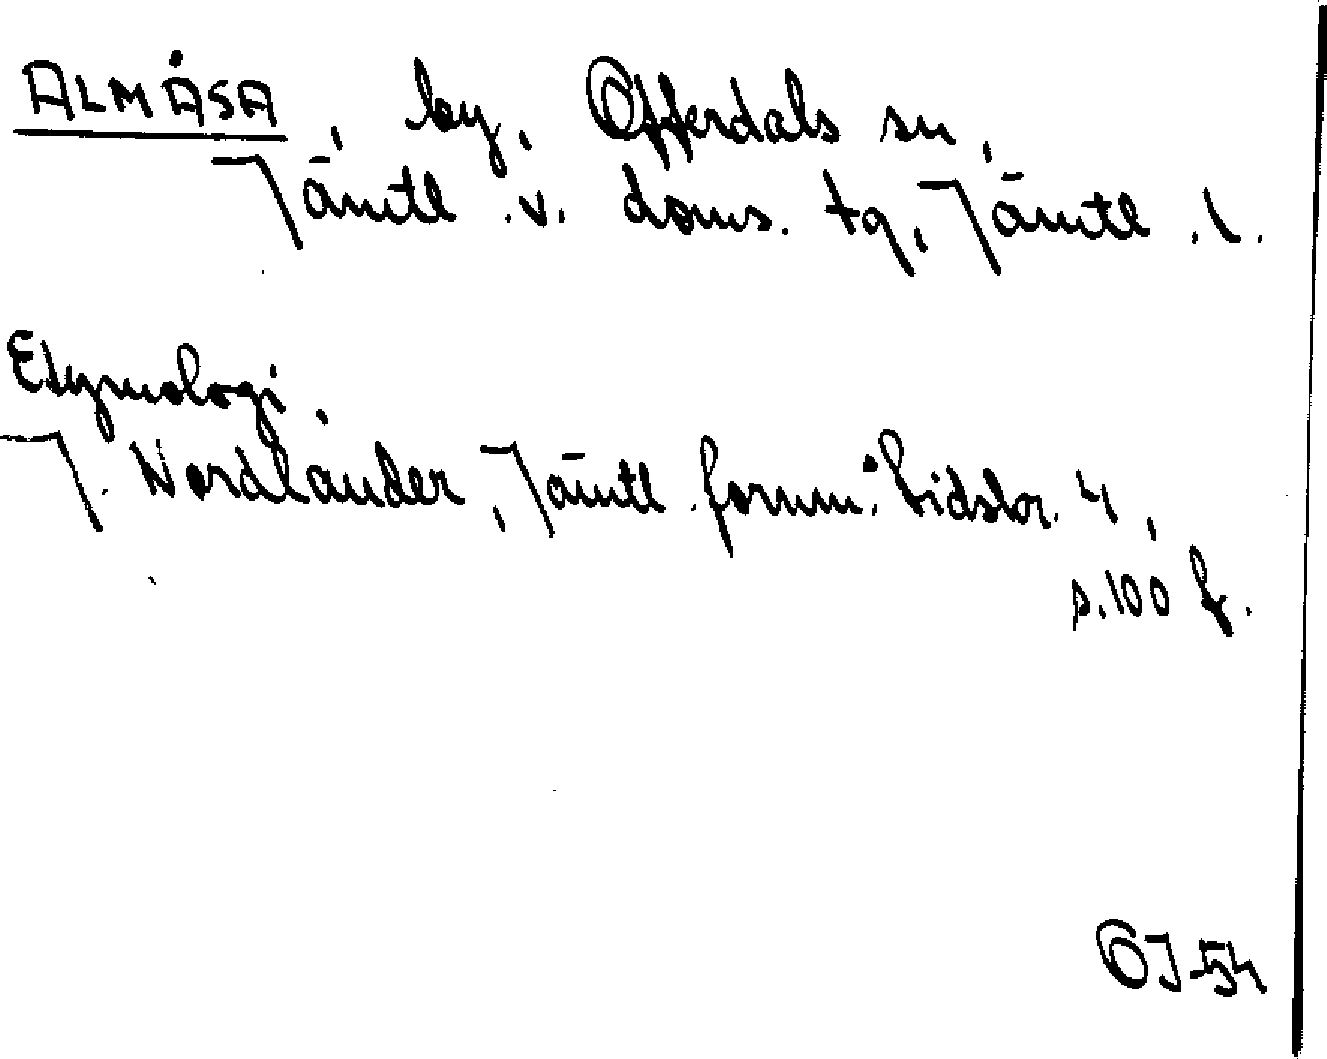 ALMÅSA, by, Offerdals sn,
Jämtl. v. doms. tg, Jämtl. l.
Etymologi.
J. Nordlander, Jämtl. fornm. tidskr. 4,
s. 100 f.
OJ-54